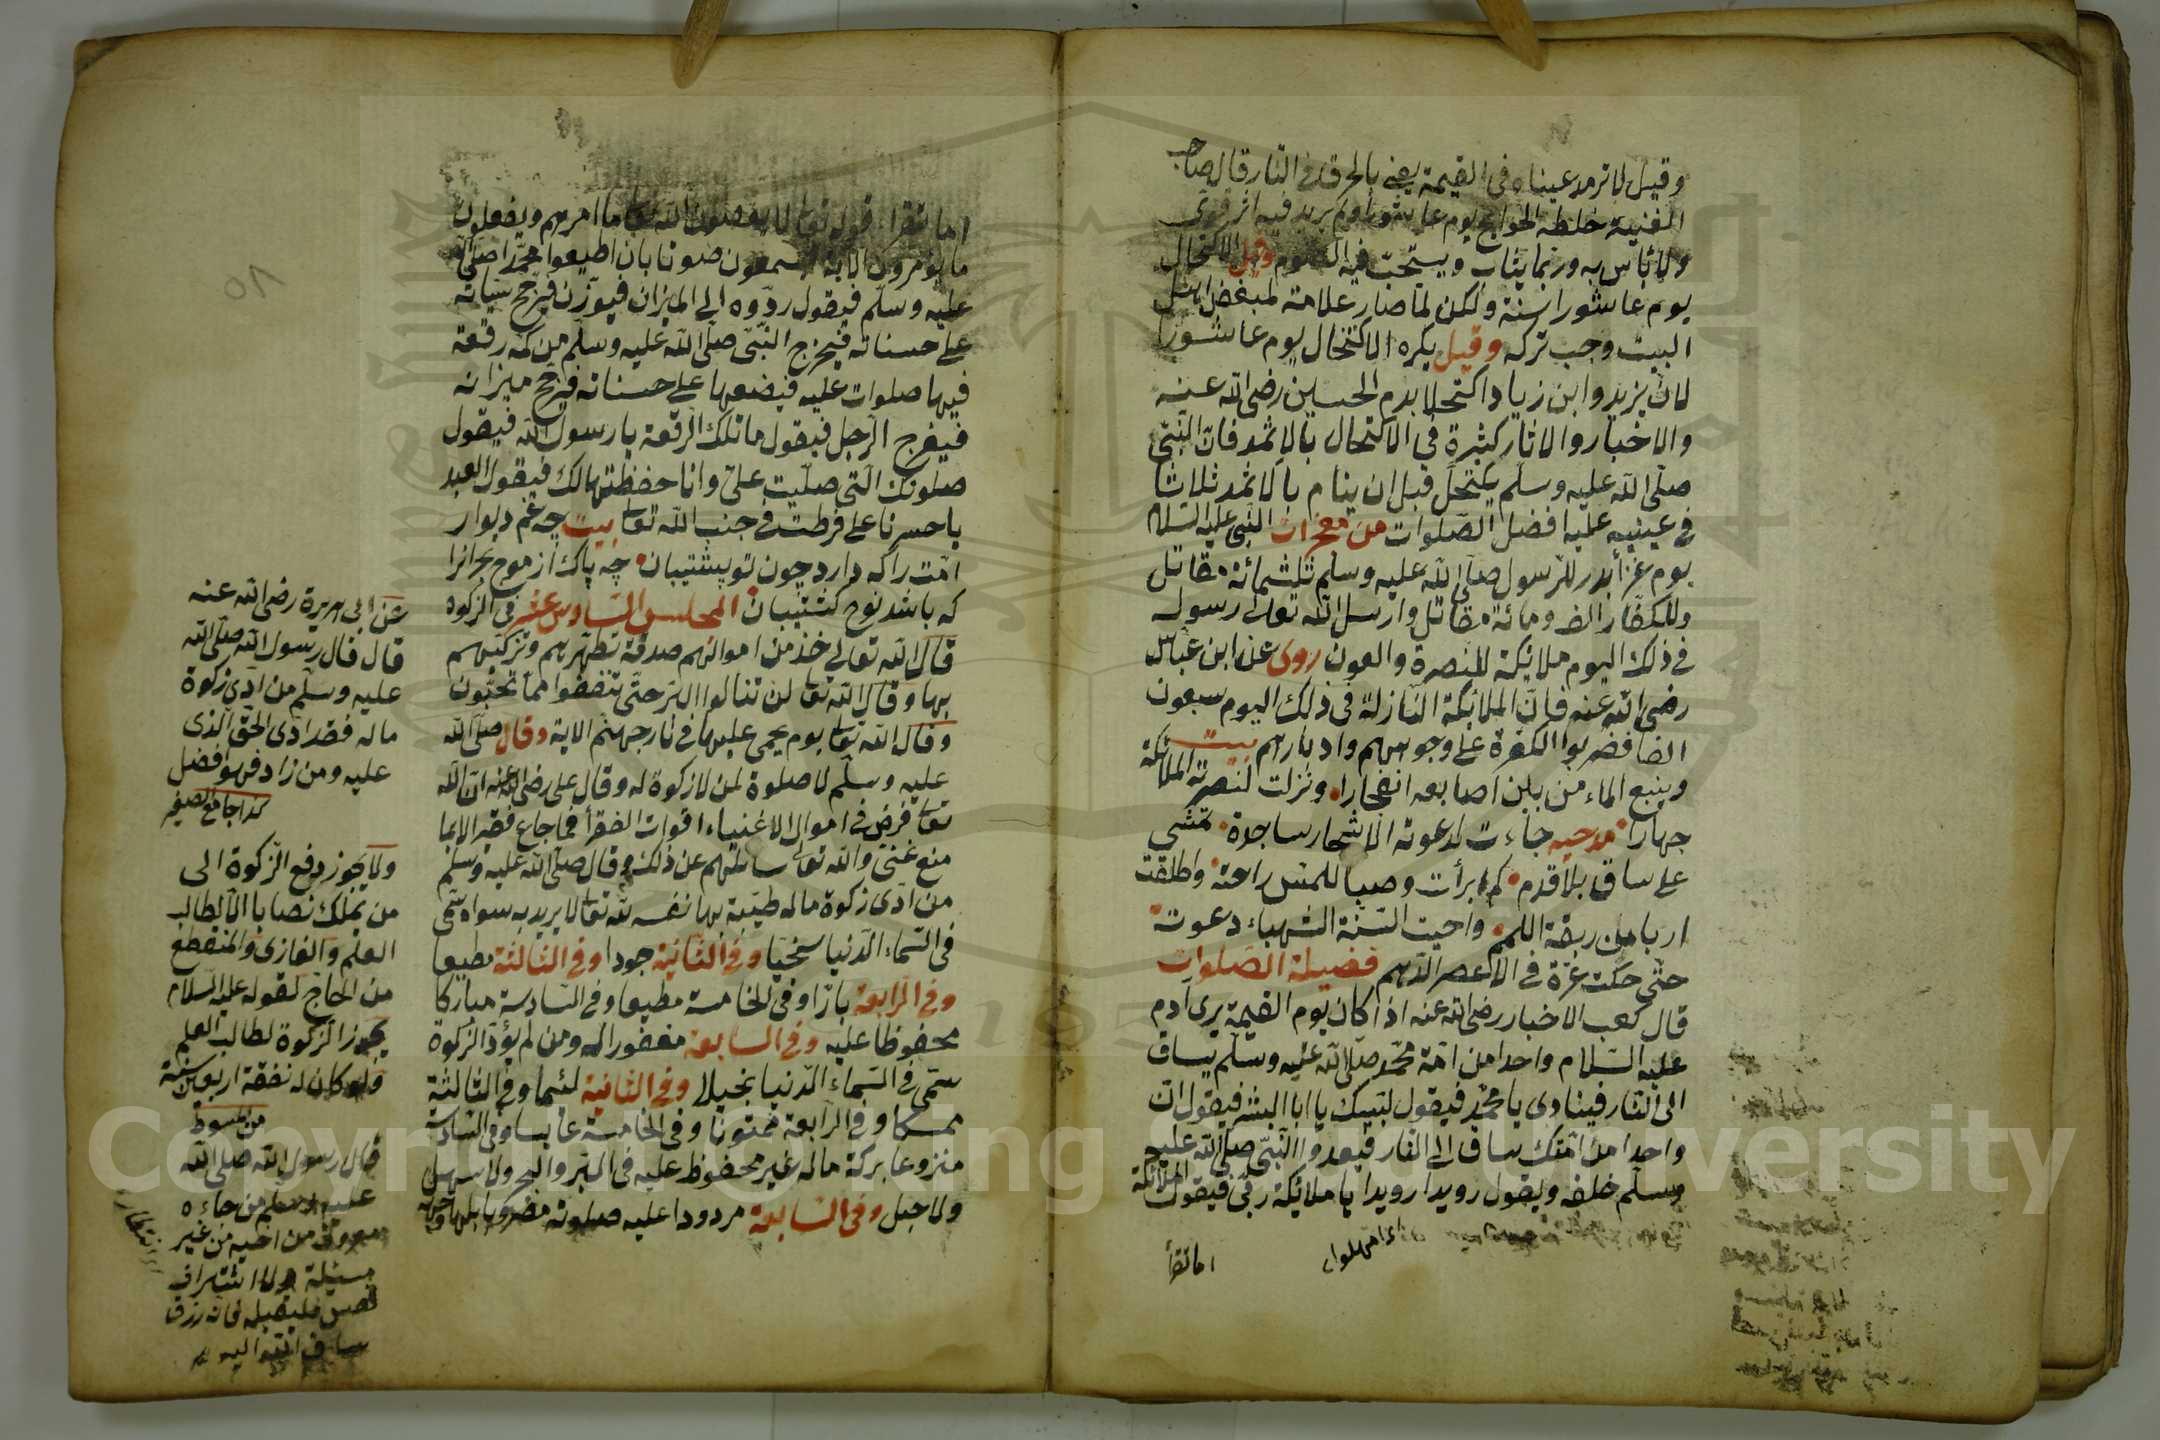 وقيل لا ترمد عيناه في القيمة يعني بالحرقة في النار قال صاحب
القنية خلطه الحوايج يوم عاشورا ولم يرد فيه اثر قوى
ولا بأس به وربما يثاب ويستحب فيه الصوم وقيل الاكتحال
يوم عاشورا سنة ولكن لما صار علامة لمبغض اهل
البيت وجب تركه وقيل يكره الاكتحال يوم عاشورا
لان يزيد وابن زياد اكتحلا بدم الحسين رضى الله عنه
والاخبار والاثار كثيرة في الاكتحال بالاثمد فان النبي
صلى الله عليه وسلم يكتحل قبل ان ينام بالاثمد ثلاثا
في عينيه عليه افضل الصلوات من معجزات النبي عليه السلام
يوم غزا بدر للرسول صلى الله عليه وسلم ثلثمائة مقاتل
وللكفار الف ومائة مقاتل وارسل الله تعالى رسوله
في ذلك اليوم ملائكة للنصرة والعون روى عن ابن عباس
رضى الله عنه فان الملائكة النازلة في ذلك اليوم سبعون
الفا فضربوا الكفرة على وجوههم وادبارهم بيت
وينبع الماء من بين اصابعه انفجارا ونزلت لنصرته الملائكة
جهارا مدحيه جاءت لدعوته الاشجار ساجدة تمشي
على ساق بلا قدم كم ابرأت وصبا للمس راحته واطلقت
اربا من ربقة اللمم واحيت السنة الشهباء دعوته
حتى حكت غرة في الاعصر الدهم فضيلة الصلوات
قال كعب الاخبار رضى الله عنه اذا كان يوم القيمة يرى ادم
عليه السلام واحدا من امة محمد صلى الله عليه وسلم يساق
الى النار فينادى يا محمد فيقول لبيك يا ابا البشر فيقول ان
واحدا من امتك ساق الى النار فيعدوا النبي صلى الله عليه
وسلم خلفه ويقول رويدا رويدا يا ملائكة ربى فيقول الملائكة
اى امهلوا
اما تقرأ
اما تقرا قوله تعالى لا يعصون الله تعالى ما امرهم ويفعلون
ما يؤمرون الاية فيسمعون صوتا بان اطيعوا محمدا صلى الله
عليه وسلم فيقول ردوه الى الميزان فيوزن فيرجح سيئاته
على حسناته فيخرج النبي صلى الله عليه وسلم من كمه رقعة
فيها صلوات عليه فيضعها على حسناته فيرجح ميزانه
فيفرح الرجل فيقول ما تلك الرقعة يا رسول الله فيقول
صلوتك التي صليت علي وانا حفظتها لك فيقول العبد
يا حسرتا على فرطت في جنب الله تعالى بيت چه غم ديوار
امت را كه دارد چون تو پشتيبان چه باك از موج بحر انرا
كه باشد نوح كشتيبان المجلس السادس عشر في الزكوة
قال الله تعالى خذ من اموالهم صدقة تطهرهم وتزكيهم
بها وقال الله تعالى لن تنالوا البر حتى تنفقوا مما تحبون
وقال الله تعالى يوم يحمى عليها في نار جهنم الاية وقال صلى الله
عليه وسلم لا صلوة لمن لا زكوة له وقال على رضى الله عنه ان الله
تعالى فرض في اموال الاغنياء اقوات الفقرأ فما جاع فقير الا بما
منع غنى والله تعالى سائلهم عن ذلك وقال صلى الله عليه وسلم
من ادى زكوة ماله طيبة بها نفسه لله تعالى لا يريد به سواه سمى
في السماء الدنيا سخيا وفي الثانية جودا وفي الثالثة مطيعا
وفي الرابعة بارا وفي الخامسة مطيعا وفي السادسة مباركا
محفوظا عليه وفي السابعة مغفورا له ومن لم يؤد الزكوة
سمى في السماء الدنيا بخيلا وفي الثانية لئيما وفي الثالثة
ممسكا وفي الرابعة ممتونا وفي الخامسة عابسا وفي السادسة
منزوعا بركة ماله غير محفوظ عليه في البر والبحر ولا سهل
ولا جبل وفي السابعة مردودا عليه صلوته مضروبا بها وجهه
عن ابى هريرة رضى الله عنه
قال قال رسول الله صلى الله
عليه وسلم من ادى زكوة
ماله فقد ادى الحق الذى
عليه ومن زاد فهو افضل
كذا جامع الصغير
ولا يجوز دفع الزكوة الى
من يملك نصابا الا لطالب
العلم والغازى والمنقطع
من الحاج لقوله عليه السلام
يجوز الزكوة لطالب العلم
ولو كان له نفقة اربعين سنة
من مبسوط
قال رسول الله صلى الله
عليه وسلم من جاءه
معروف من اخيه من غير
مسئلة ولا اشراف
نفس فليقبله فانه رزق
ساق الله اليه
Copyright © King Saud University
1957